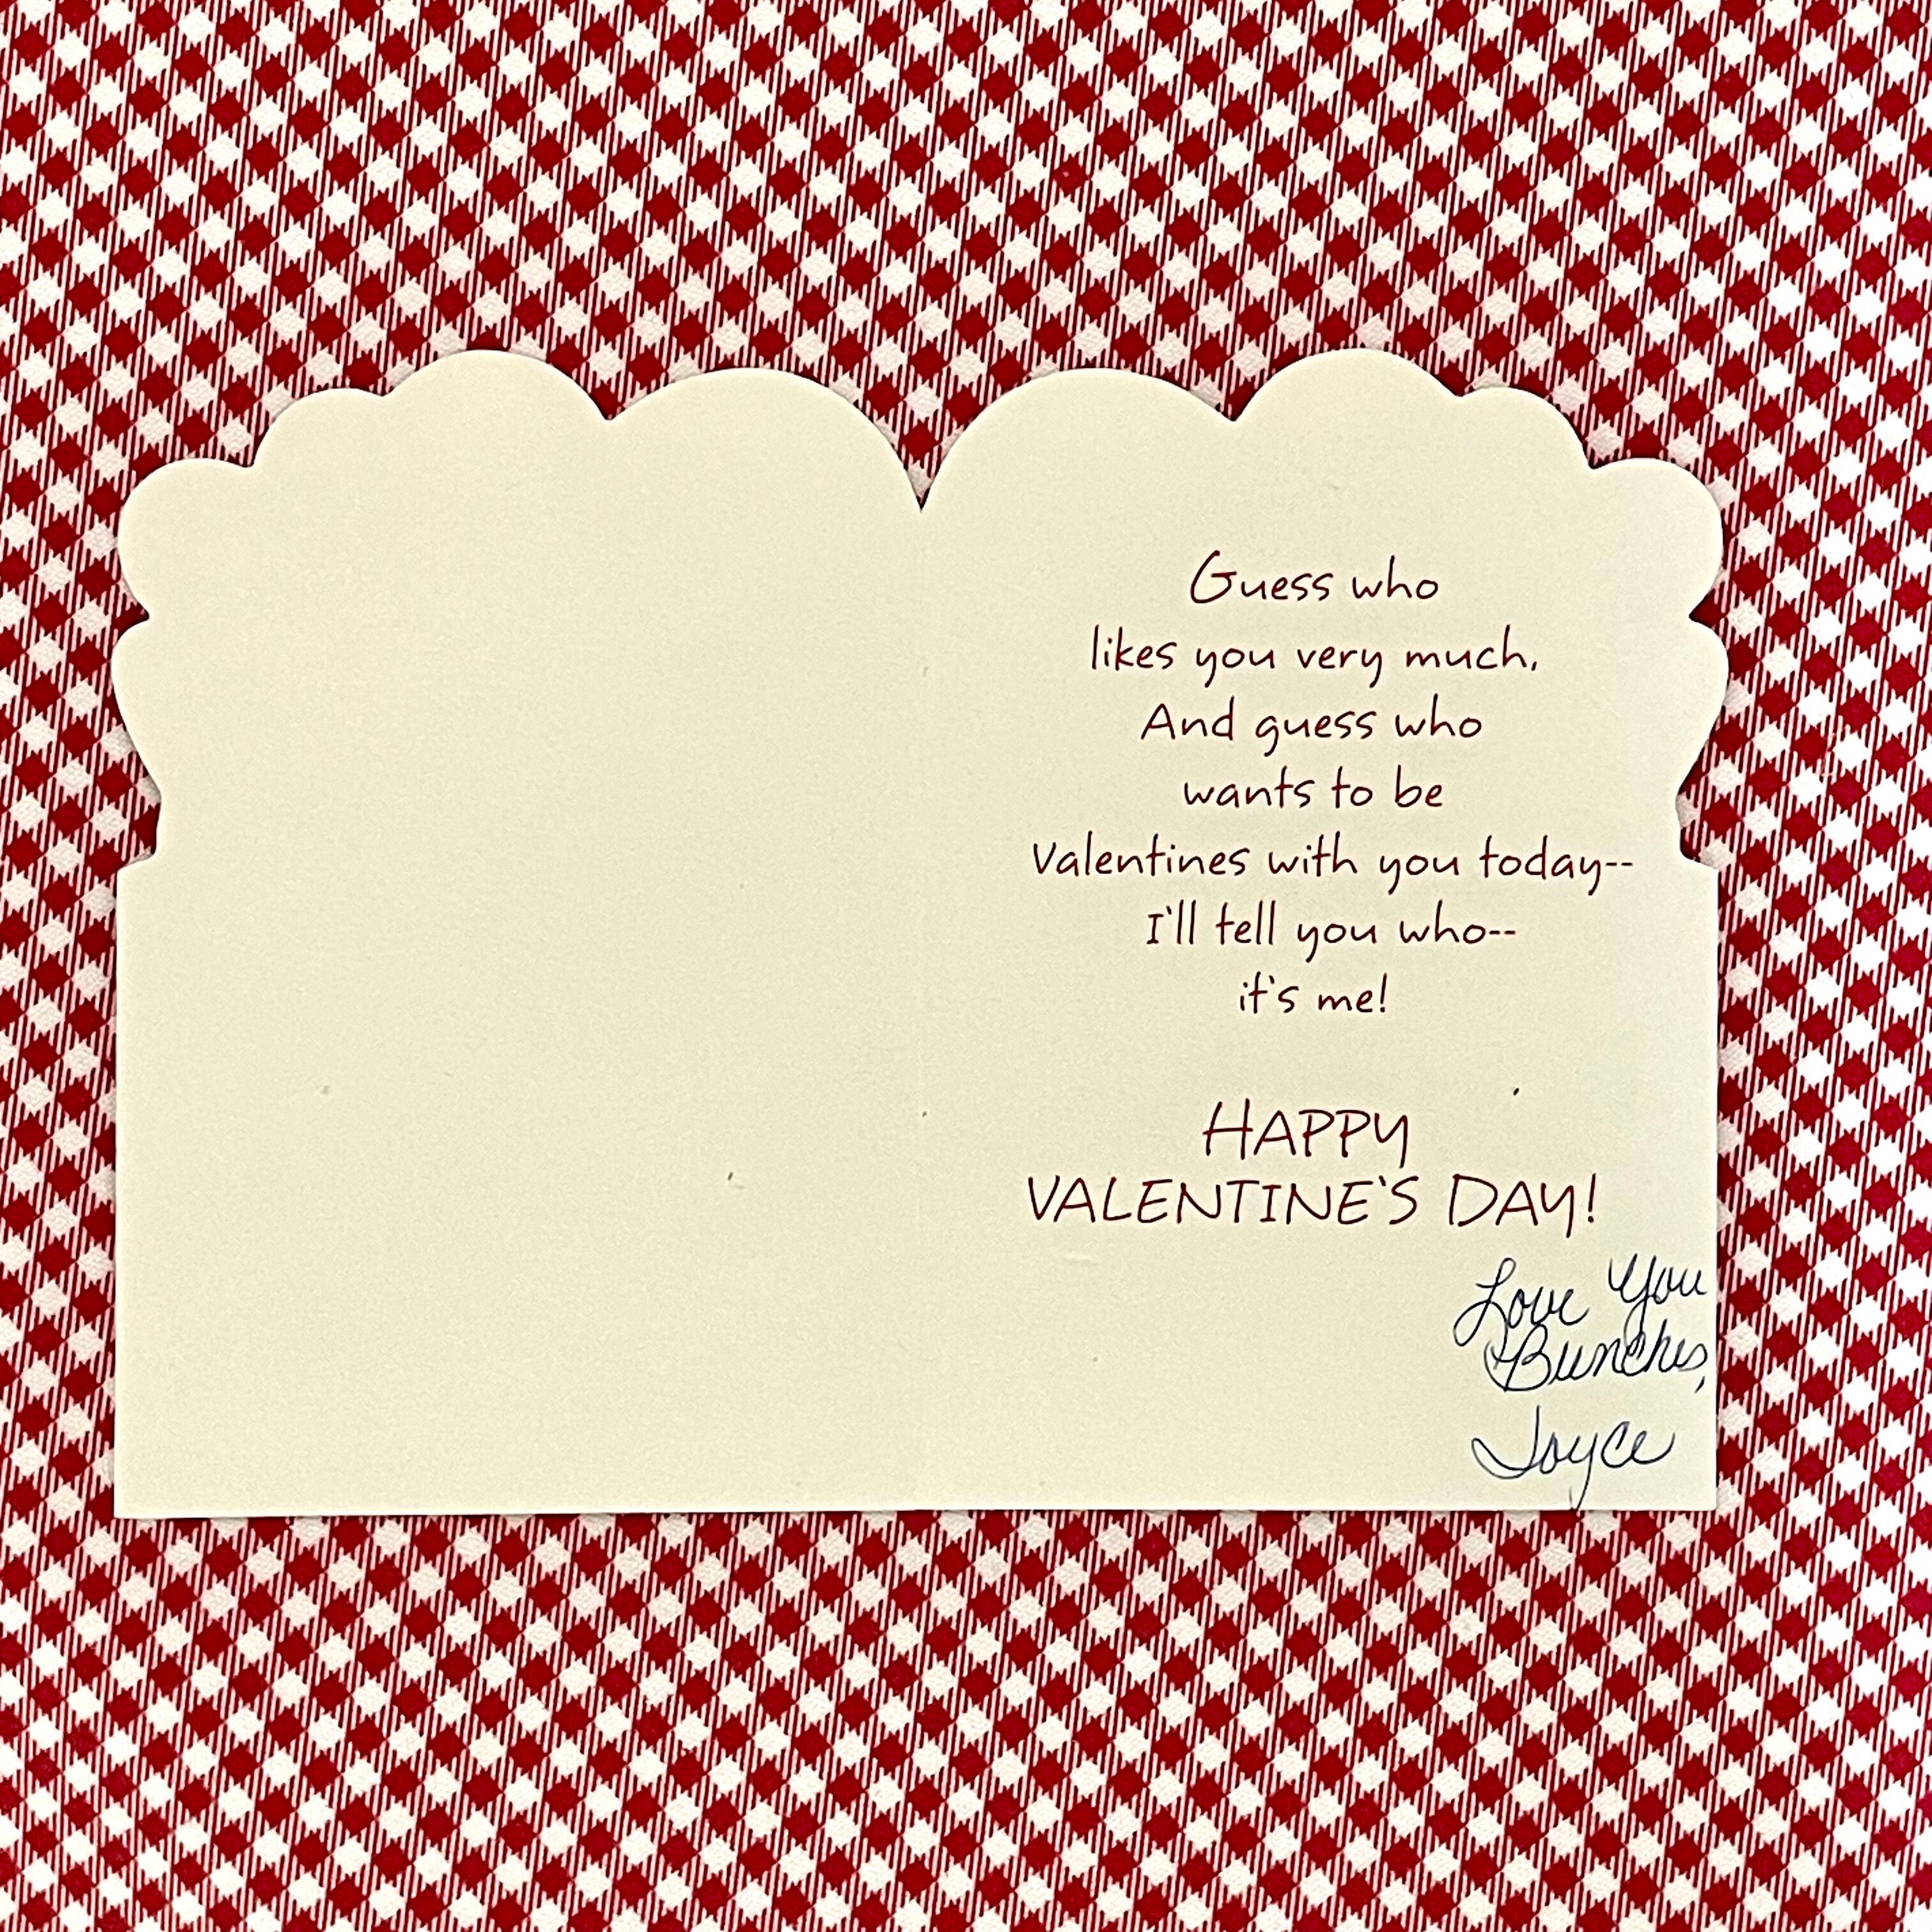 Guess who
likes you very much,
And guess who
wants to be
Valentines with you today--
I'll tell you who--
it's me!
HAPPY
VALENTINE'S DAY!
Love You
Bunches,
Joyce